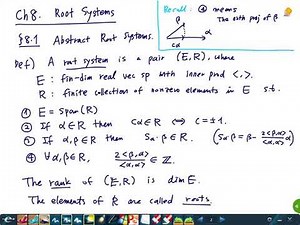 Ch 8. Root Systems
§8.1 Abstract Root Systems.
Recall. α means
The orth proj of β
β
cα
α
Def) A root system is a pair (E, R), where
E : fin-dim real vec sp with inner prod <·,·>.
R : finite collection of nonzero elements in E s.t.
① E = Span(R)
② If α∈R then cα∈R ⟺ c=±1.
③ If α,β∈R then Sα·β∈R. (Sα·β = β - 2<β,α>/<α,α> α)
④ ∀α,β∈R, 2<β,α>/<α,α> ∈ ℤ.
The rank of (E,R) is dim E.
The elements of R are called roots.